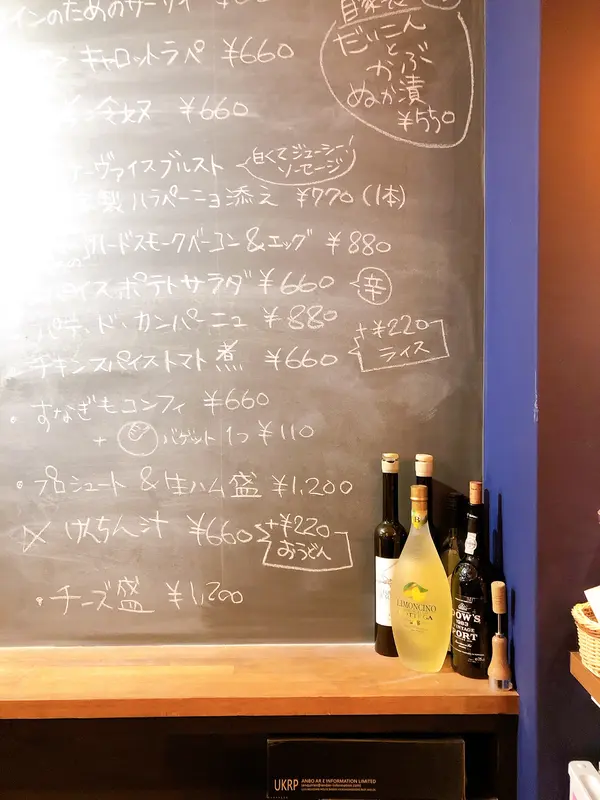 インのためのサーディ
自家製
だいこん
と
かぶ
ぬか漬
¥550
キャロットラペ ¥660
冷奴 ¥660
ヴァイスブルスト
白くてジューシー!
ソーセージ
製ハラペーニョ添え ¥770 (1本)
ハードスモークベーコン&エッグ ¥880
イスポテトサラダ ¥660
辛
パテ・ド・カンパーニュ ¥880
チキンスパイストマト煮 ¥660
+¥220
ライス
・すなぎもコンフィ ¥660
+ バゲット1つ ¥110
・プロシュート & 生ハム盛 ¥1,200
けんちん汁 ¥660
+¥220
おうどん
・チーズ盛 ¥1,200
LIMONCINO
BOTTEGA
DOW'S
1983
VINTAGE
PORT
UKRP ANBO AR E INFORMATION LIMITED